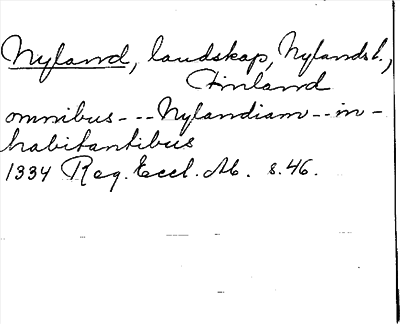 Nyland, landskap, Nylands l.,
Finland
omnibus - - - Nylandiam - - in -
habitantibus
1334 Reg. Eccl. Ab. s. 46.